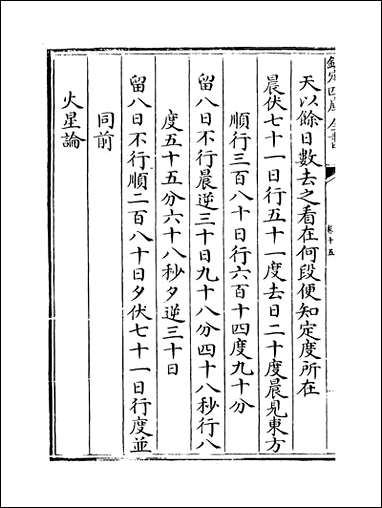 欽定四庫全書
卷十五
天以餘日數去之看在何段便知定度所在
晨伏七十一日行五十一度去日二十度晨見東方
順行三百八十日行六百十四度九十分
留八日不行晨逆三十日九十八分四十八秒行八
度五十五分六十八秒夕逆三十日
留八日不行順二百八十日夕伏七十一日行度並
同前
火星論